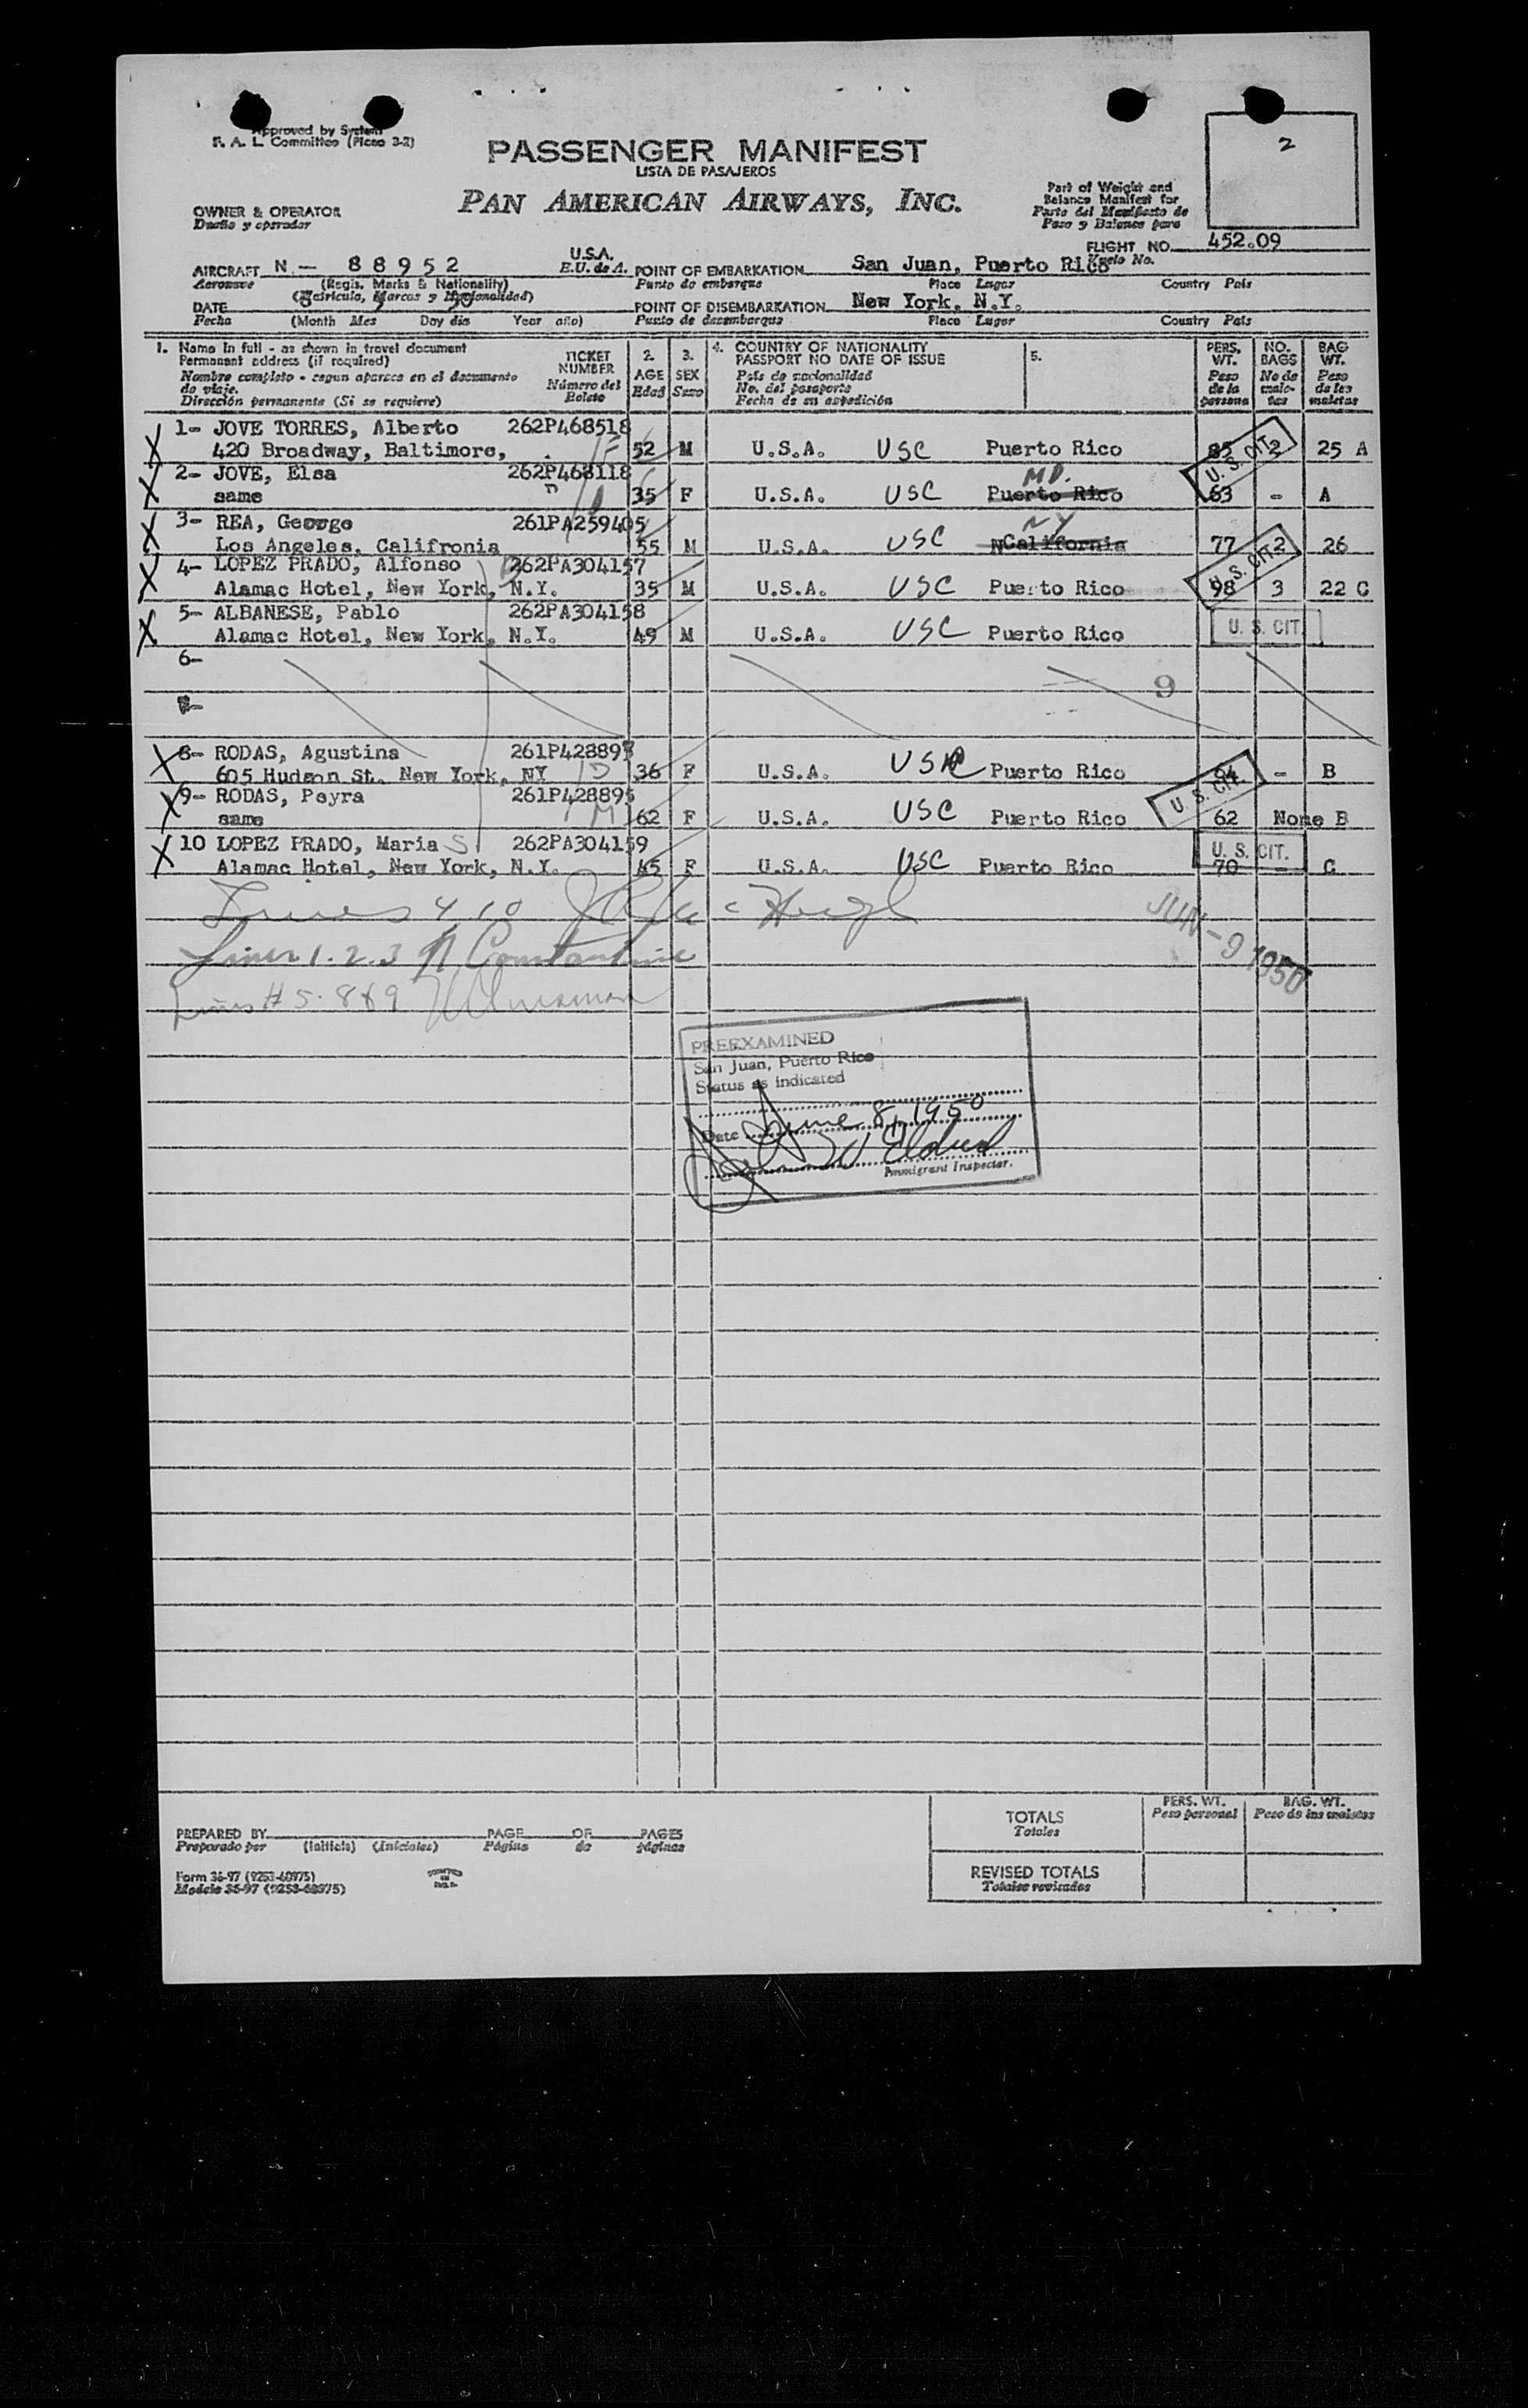 Approved by System
F. A. L. Committee (Picao 3-2)
2
PASSENGER MANIFEST
LISTA DE PASAJEROS
PAN AMERICAN AIRWAYS, INC.
Part of Weight and
Balance Manifest for
Parte del Manifiesto de
Peso y Balance para
OWNER & OPERATOR
Dueño y operador
FLIGHT NO. 452.09
Vuelo No.
AIRCRAFT N - 88952 U.S.A. POINT OF EMBARKATION San Juan, Puerto Rico
Aeronave (Regis. Marks & Nationality) E.U. de A. Punto de embarque Place Lugar Country País
(Matrícula, Marcas y Nacionalidad)
DATE POINT OF DISEMBARKATION New York, N.Y.
Fecha (Month Mes Day día Year año) Punto de desembarque Place Lugar Country País
1. Name in full - as shown in travel document TICKET 2. 3. 4. COUNTRY OF NATIONALITY 5. PERS. NO. BAG
Permanent address (if required) NUMBER AGE SEX PASSPORT NO DATE OF ISSUE WT. BAGS WT.
Nombre completo - segun aparece en el documento Número del Edad Sexo País de nacionalidad Peso No de Peso
de viaje. Boleto No. del pasaporte de la male- de las
Dirección permanente (Si se requiere) Fecha de su expedición persona tas maletas
X 1- JOVE TORRES, Alberto 262P468518
420 Broadway, Baltimore, 52 M U.S.A. USC Puerto Rico 85 2 25 A
X 2- JOVE, Elsa 262P468118 MD.
same 35 F U.S.A. USC Puerto Rico 63 - A
X 3- REA, George 261PA259405 NY
Los Angeles, Califronia 55 M U.S.A. USC California 77 2 26
X 4- LOPEZ PRADO, Alfonso 262PA304157
Alamac Hotel, New York, N.Y. 35 M U.S.A. USC Puerto Rico 98 3 22 C
X 5- ALBANESE, Pablo 262PA304158
Alamac Hotel, New York, N.Y. 49 M U.S.A. USC Puerto Rico U. S. CIT.
6-
9
7-
X 8- RODAS, Agustina 261P428897
605 Hudson St. New York, NY 36 F U.S.A. Puerto Rico 64 - B
X 9- RODAS, Peyra 261P428895
same 62 F U.S.A. USC Puerto Rico 62 None B
X 10 LOPEZ PRADO, Maria S 262PA304159
Alamac Hotel, New York, N.Y. 45 F U.S.A. USC Puerto Rico 70 - C
U. S. CIT.
U. S. CIT.
U. S. CIT.
U. S. CIT.
Lines 4 10
JUN - 9 1950
Lines 1. 2. 3 Constantine
Lines # 5. 8 & 9
PREEXAMINED
San Juan, Puerto Rico
Status as indicated
Date June 8, 1950
Immigrant Inspector.
PREPARED BY PAGE OF PAGES
Preparado por (Initials) (Iniciales) Página de páginas
Form 36-97 (9253-60975)
Modelo 36-97 (9253-60975)
PERS. WT. BAG. WT.
Peso personal Peso de las maletas
TOTALS
Totales
REVISED TOTALS
Totales revisados